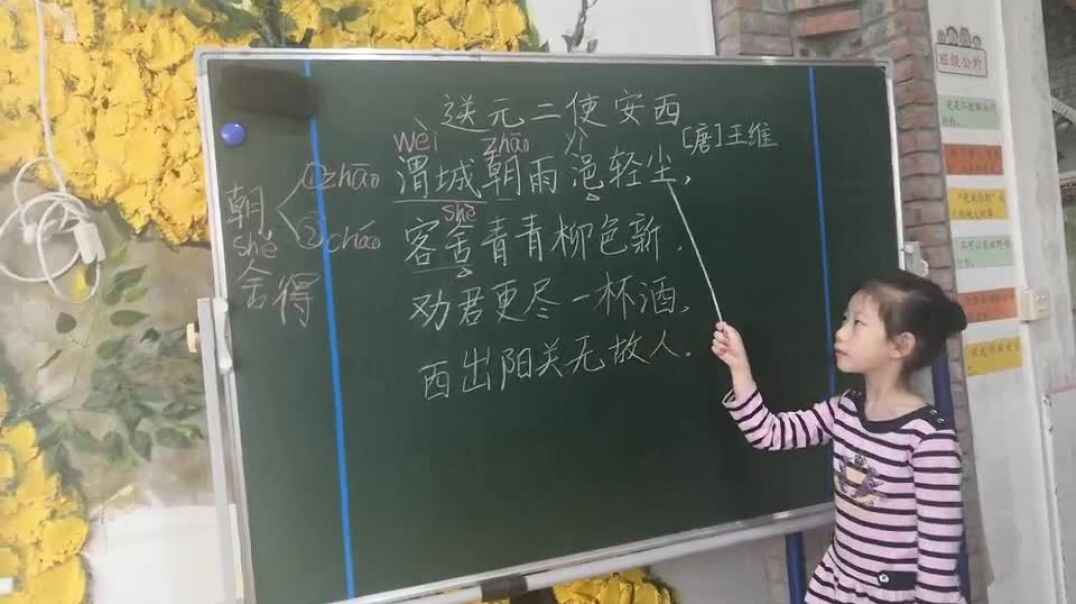 送元二使安西
[唐]王维
wèi zhāo yì
渭城朝雨浥轻尘，
shè
客舍青青柳色新.
劝君更尽一杯酒,
西出阳关无故人.
朝
①zhāo
②cháo
shě
舍得
班级公约